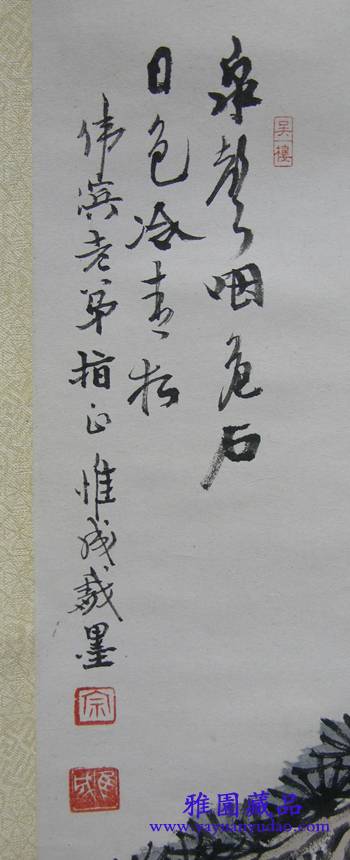 泉聲咽危石
日色冷青松
伟滨老弟指正 惟成戲墨
宗
惟成
雅園藏品
www.yayuanyudao.com